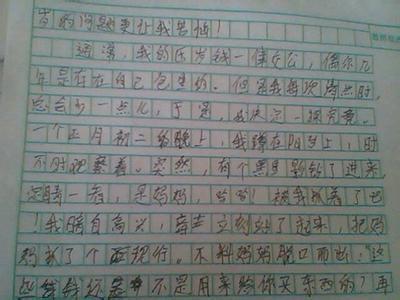 岁的问题更让我苦恼！
通常，我的压岁钱一律充公，偶尔几
年是存在自己包里的。但是我每次清点时，
总会少一点儿，于是，我决定一探究竟。
一个正月初二的晚上，我蹲在阳台上，时
不时观察着。突然，有个黑影钻了进来，
定睛一看，是妈妈，哈哈！被我抓着了吧
！我暗自高兴，立刻站了起来，把妈
妈抓了个正现行。不料妈妈脱口而出：这
些钱还是不是用来给你买东西的？再